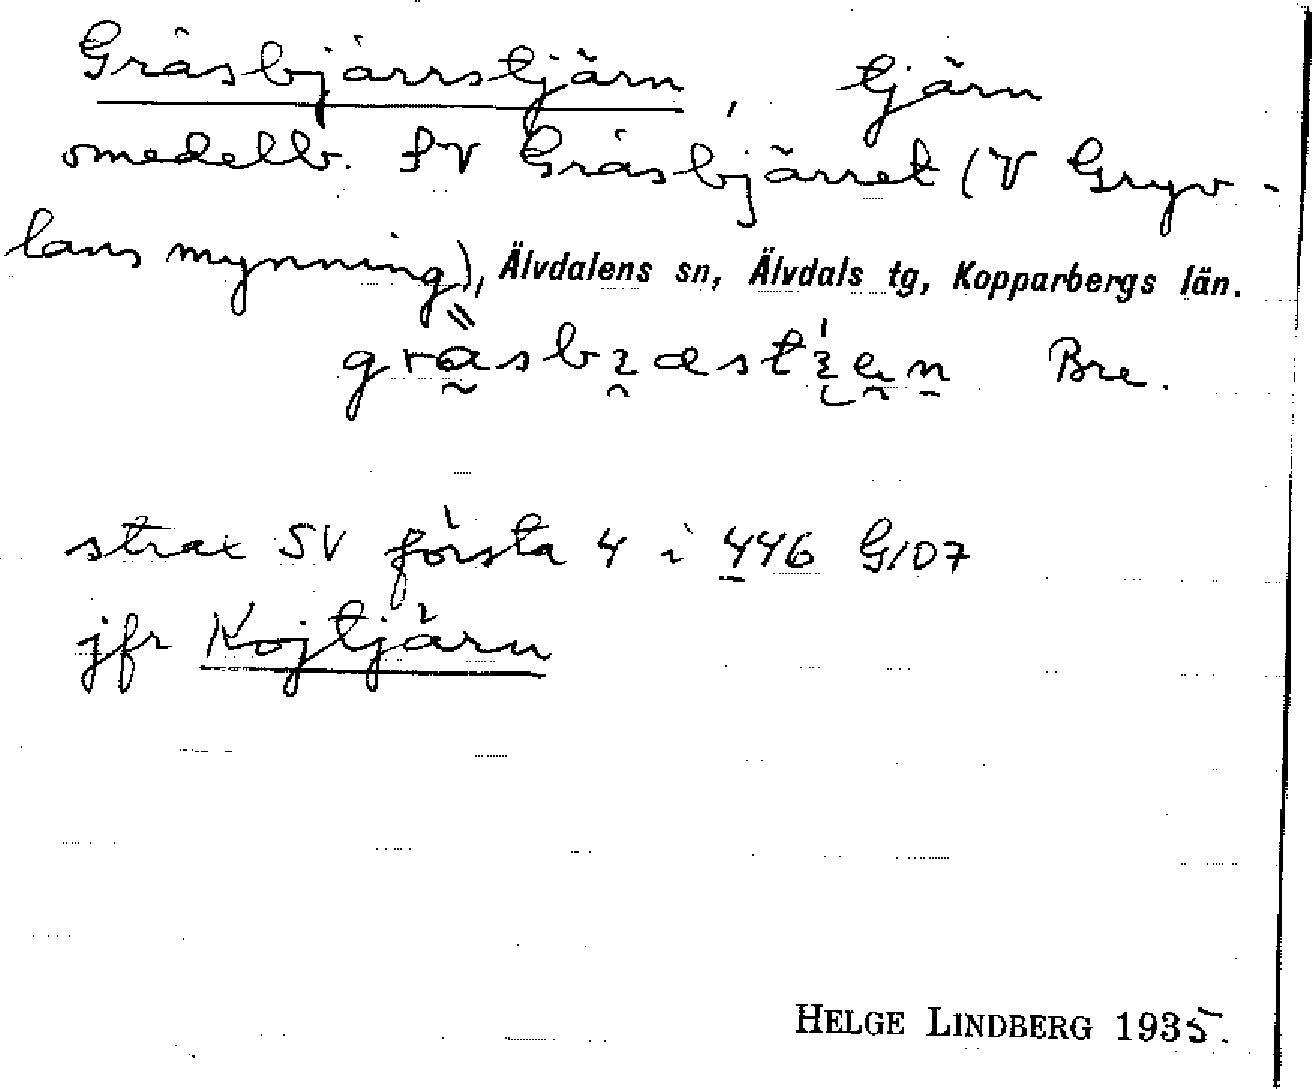 Gräsbjärrstjärn, tjärn
omedelb. SV Gräsbjärret (V Gryv-
lans mynning), Älvdalens sn, Älvdals tg, Kopparbergs län.
Bre.
strax SV första 4 i 446 G/D7
jfr Kojtjärn
HELGE LINDBERG 1935.